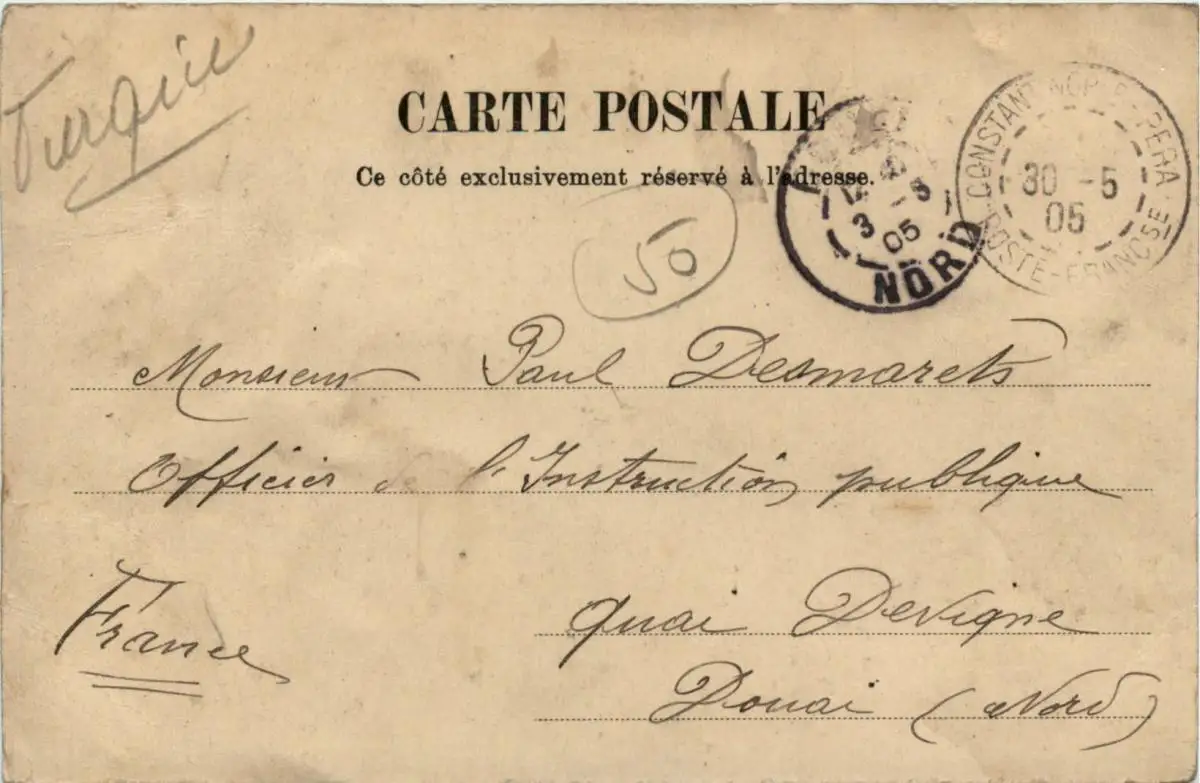 Turquie
CARTE POSTALE
Ce côté exclusivement réservé à l'adresse.
50
NORD
3 -5
05
CONSTANTINOPLE-PERA
30 -5
05
POSTE-FRANCSE
Monsieur Paul Desmarets
Officier de l'Instruction publique
quai Devigne
France
Douai (Nord)